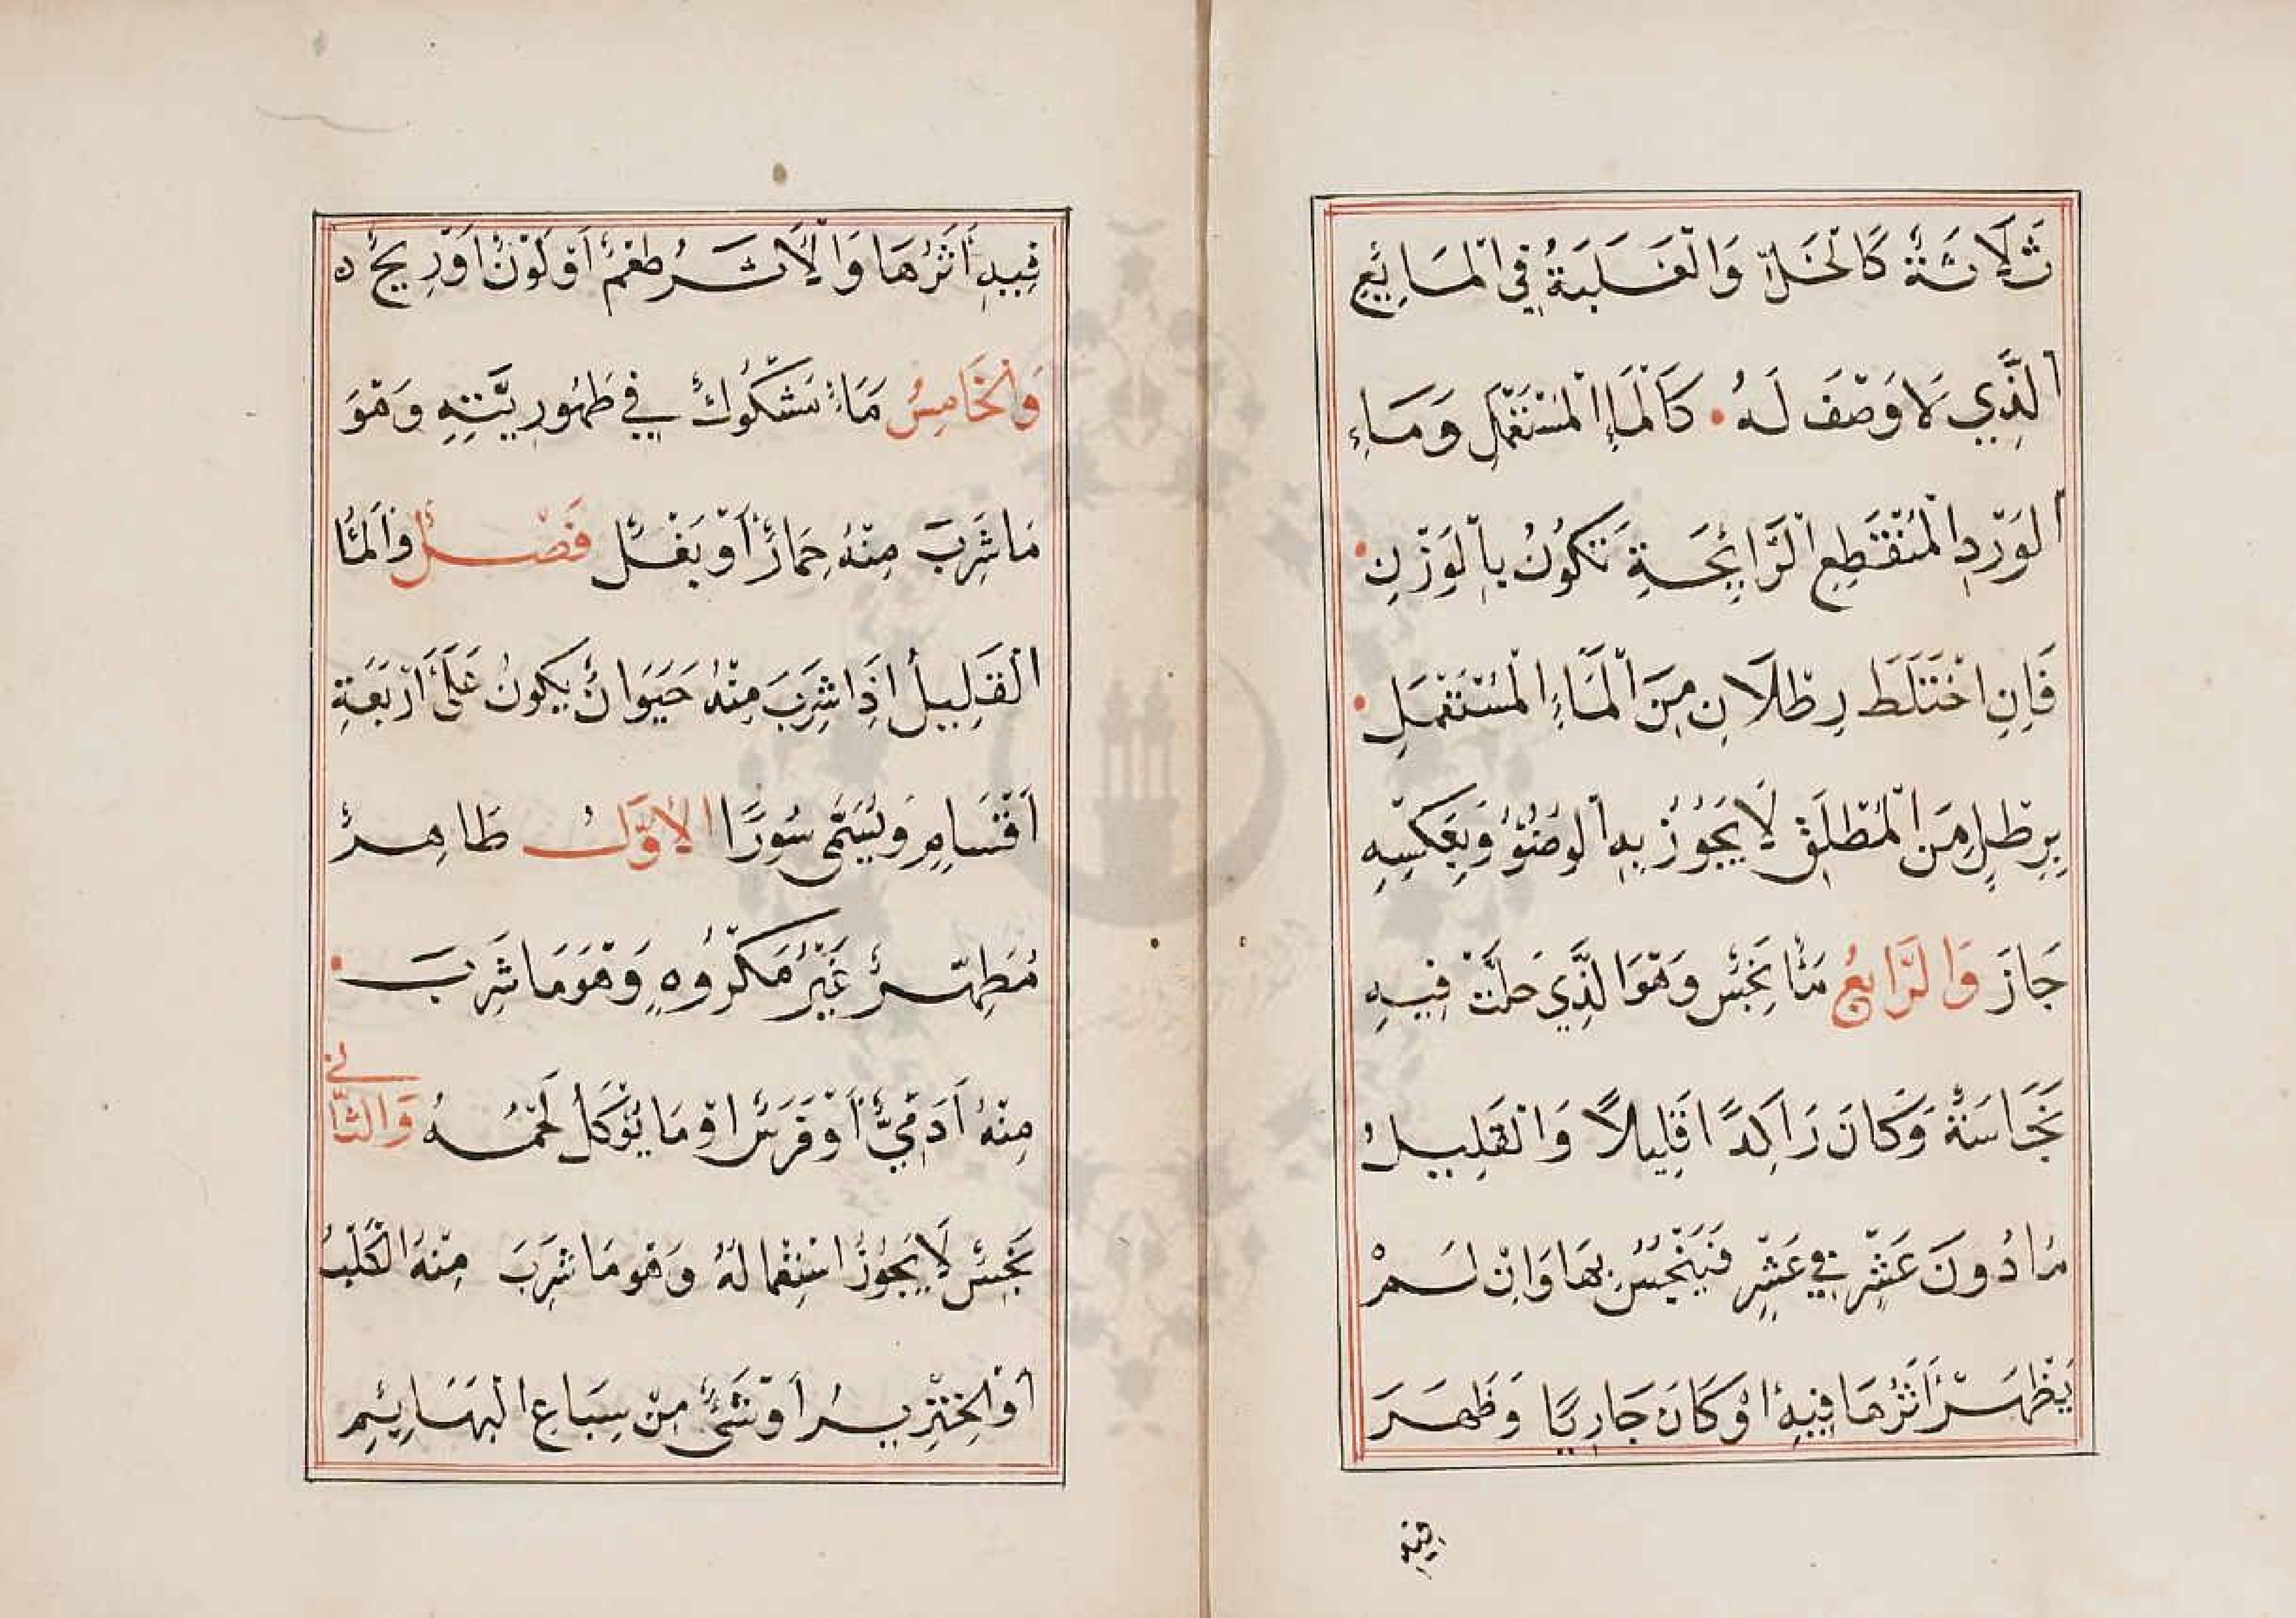 ثَلَاثَةٌ كَالْخَلِّ وَالْغَلَبَةُ فِي الْمَائِعِ
الَّذِي لَا وَصْفَ لَهُ كَالْمَاءِ الْمُسْتَعْمَلِ وَمَاءِ
الْوَرْدِ الْمُنْقَطِعِ الرَّائِحَةِ تَكُونُ بِالْوَزْنِ
فَإِنِ اخْتَلَطَ رِطْلَانِ مِنَ الْمَاءِ الْمُسْتَعْمَلِ
بِرِطْلٍ مِنَ الْمُطْلَقِ لَا يَجُوزُ بِهِ الْوُضُوءُ وَبِعَكْسِهِ
جَازَ وَالرَّابِعُ مَاءٌ نَجِسٌ وَهُوَ الَّذِي حَلَّتْ فِيهِ
نَجَاسَةٌ وَكَانَ رَاكِدًا قَلِيلًا وَالْقَلِيلُ
مَا دُونَ عَشْرٍ فِي عَشْرٍ فَيَنْجُسُ بِهَا وَإِنْ لَمْ
يَظْهَرْ أَثَرُهَا فِيهِ أَوْ كَانَ جَارِيًا وَظَهَرَ
فِيهِ
فِيهِ أَثَرُهَا وَالْأَثَرُ طَعْمٌ أَوْ لَوْنٌ أَوْ رِيحٌ
وَالْخَامِسُ مَاءٌ مَشْكُوكٌ فِي طَهُورِيَّتِهِ وَهُوَ
مَا شَرِبَ مِنْهُ حِمَارٌ أَوْ بَغْلٌ فَصْلٌ وَالْمَاءُ
الْقَلِيلُ إِذَا شَرِبَ مِنْهُ حَيَوَانٌ يَكُونُ عَلَى أَرْبَعَةِ
أَقْسَامٍ وَيُسَمَّى سُورًا الْأَوَّلُ طَاهِرٌ
مُطَهِّرٌ غَيْرُ مَكْرُوهٍ وَهُوَ مَا شَرِبَ
مِنْهُ آدَمِيٌّ أَوْ فَرَسٌ أَوْ مَا يُؤْكَلُ لَحْمُهُ وَالثَّانِي
نَجِسٌ لَا يَجُوزُ اسْتِعْمَالُهُ وَهُوَ مَا شَرِبَ مِنْهُ الْكَلْبُ
أَوِ الْخِنْزِيرُ أَوْ شَيْءٌ مِنْ سِبَاعِ الْبَهَائِمِ